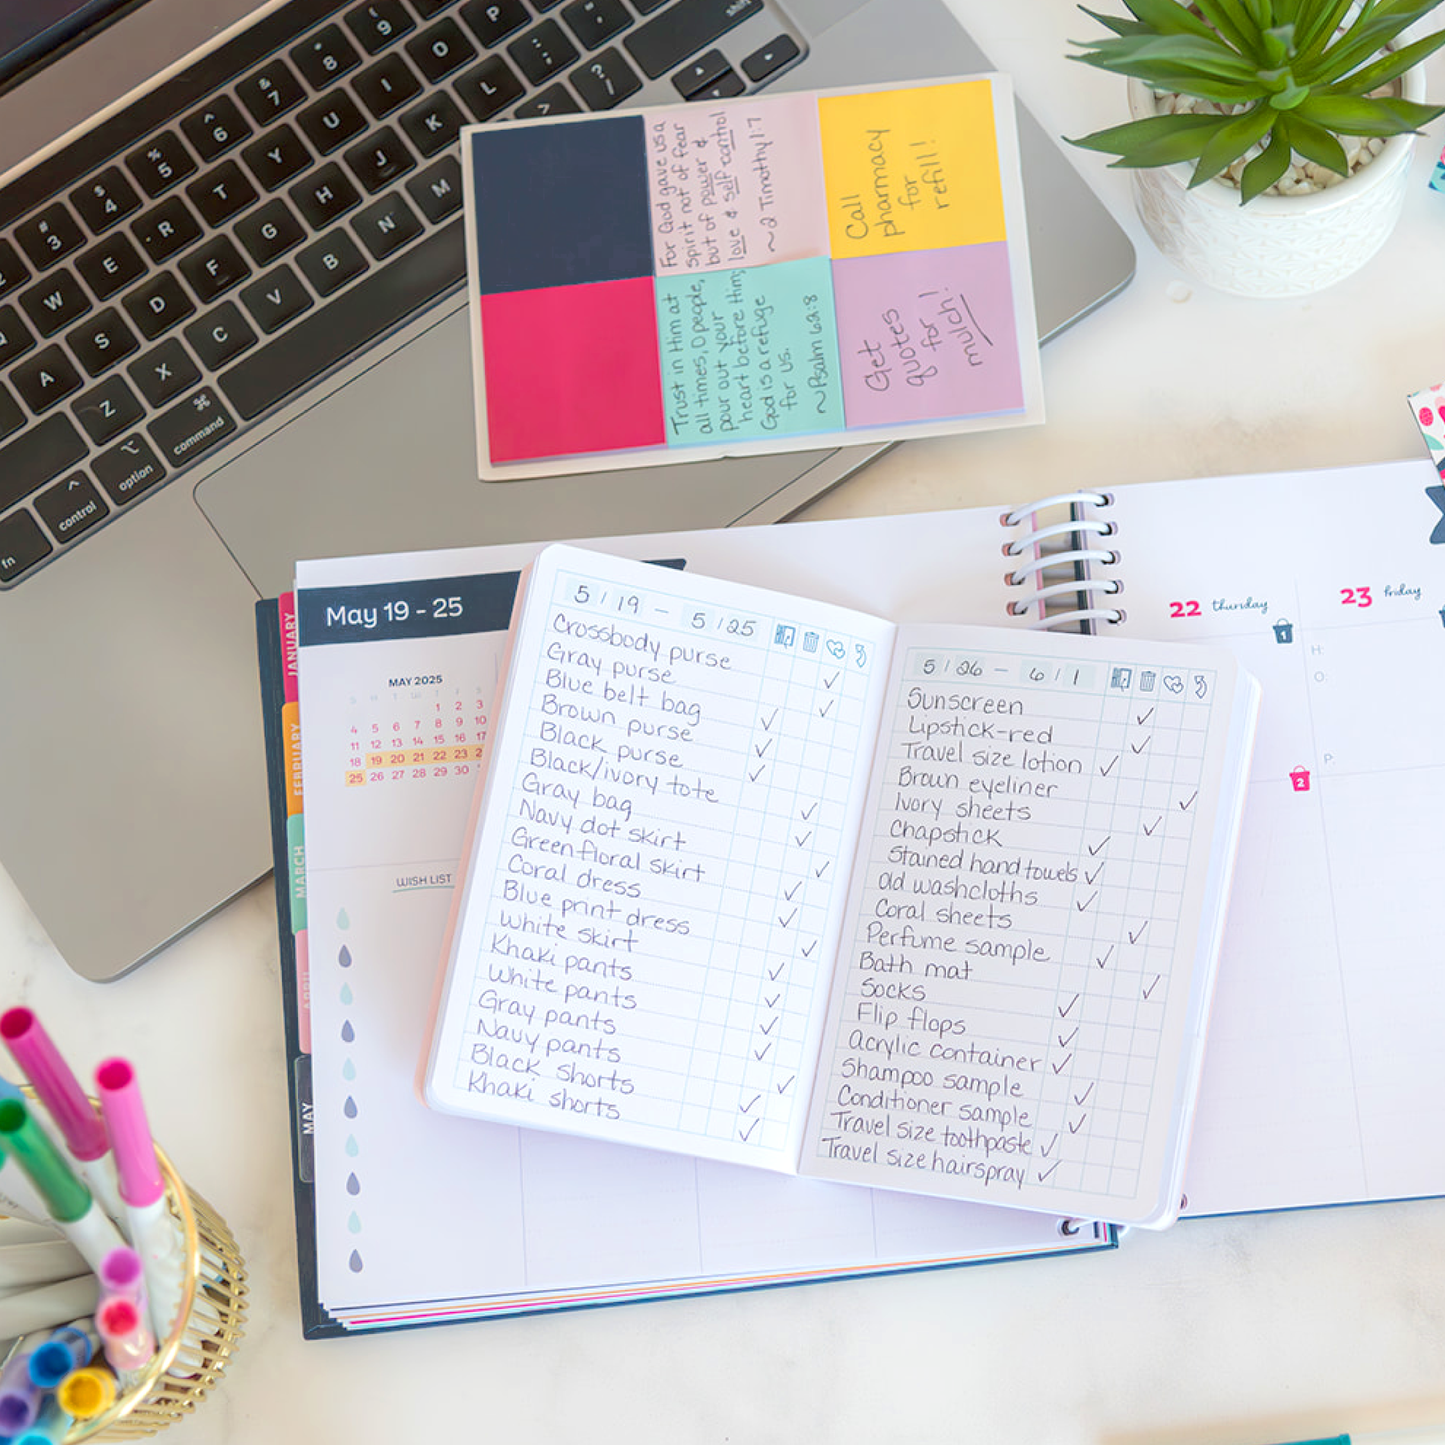 9
P
shift
8
O
:
;
"
'
&
7
I
L
>
^
6
U
K
?
/
%
5
Y
J
M
$
4
T
H
N
#
3
R
G
B
E
F
V
W
D
C
S
X
A
Z
⌘
command
⌥
option
^
control
fn
For God gave us a
spirit not of fear
but of power &
love & self control
~2 Timothy 1:7
Call
pharmacy
for
refill!
Trust in Him at
all times, O people,
pour out your
heart before Him;
God is a refuge
for us.
~Psalm 62:8
Get
quotes
for
mulch!
May 19 - 25
JANUARY
FEBRUARY
MARCH
APRIL
MAY
MAY 2025
S M T W T F
1 2 3
4 5 6 7 8 9 10
11 12 13 14 15 16 17
18 19 20 21 22 23 2
25 26 27 28 29 30
WISH LIST
5 / 19 - 5 / 25
Crossbody purse ✓
Gray purse ✓
Blue belt bag ✓
Brown purse ✓
Black purse ✓
Black/ivory tote ✓
Gray bag ✓
Navy dot skirt ✓
Green floral skirt ✓
Coral dress ✓
Blue print dress ✓
White skirt ✓
Khaki pants ✓
White pants ✓
Gray pants ✓
Navy pants ✓
Black shorts ✓
Khaki shorts ✓
5 / 26 - 6 / 1
Sunscreen ✓
Lipstick-red ✓
Travel size lotion ✓
Brown eyeliner ✓
Ivory sheets ✓
Chapstick ✓
Stained hand towels ✓
Old washcloths ✓
Coral sheets ✓
Perfume sample ✓
Bath mat ✓
Socks ✓
Flip flops ✓
Acrylic container ✓
Shampoo sample ✓
Conditioner sample ✓
Travel size toothpaste ✓
Travel size hairspray ✓
22 thursday
23 friday
1
H:
O:
P:
2